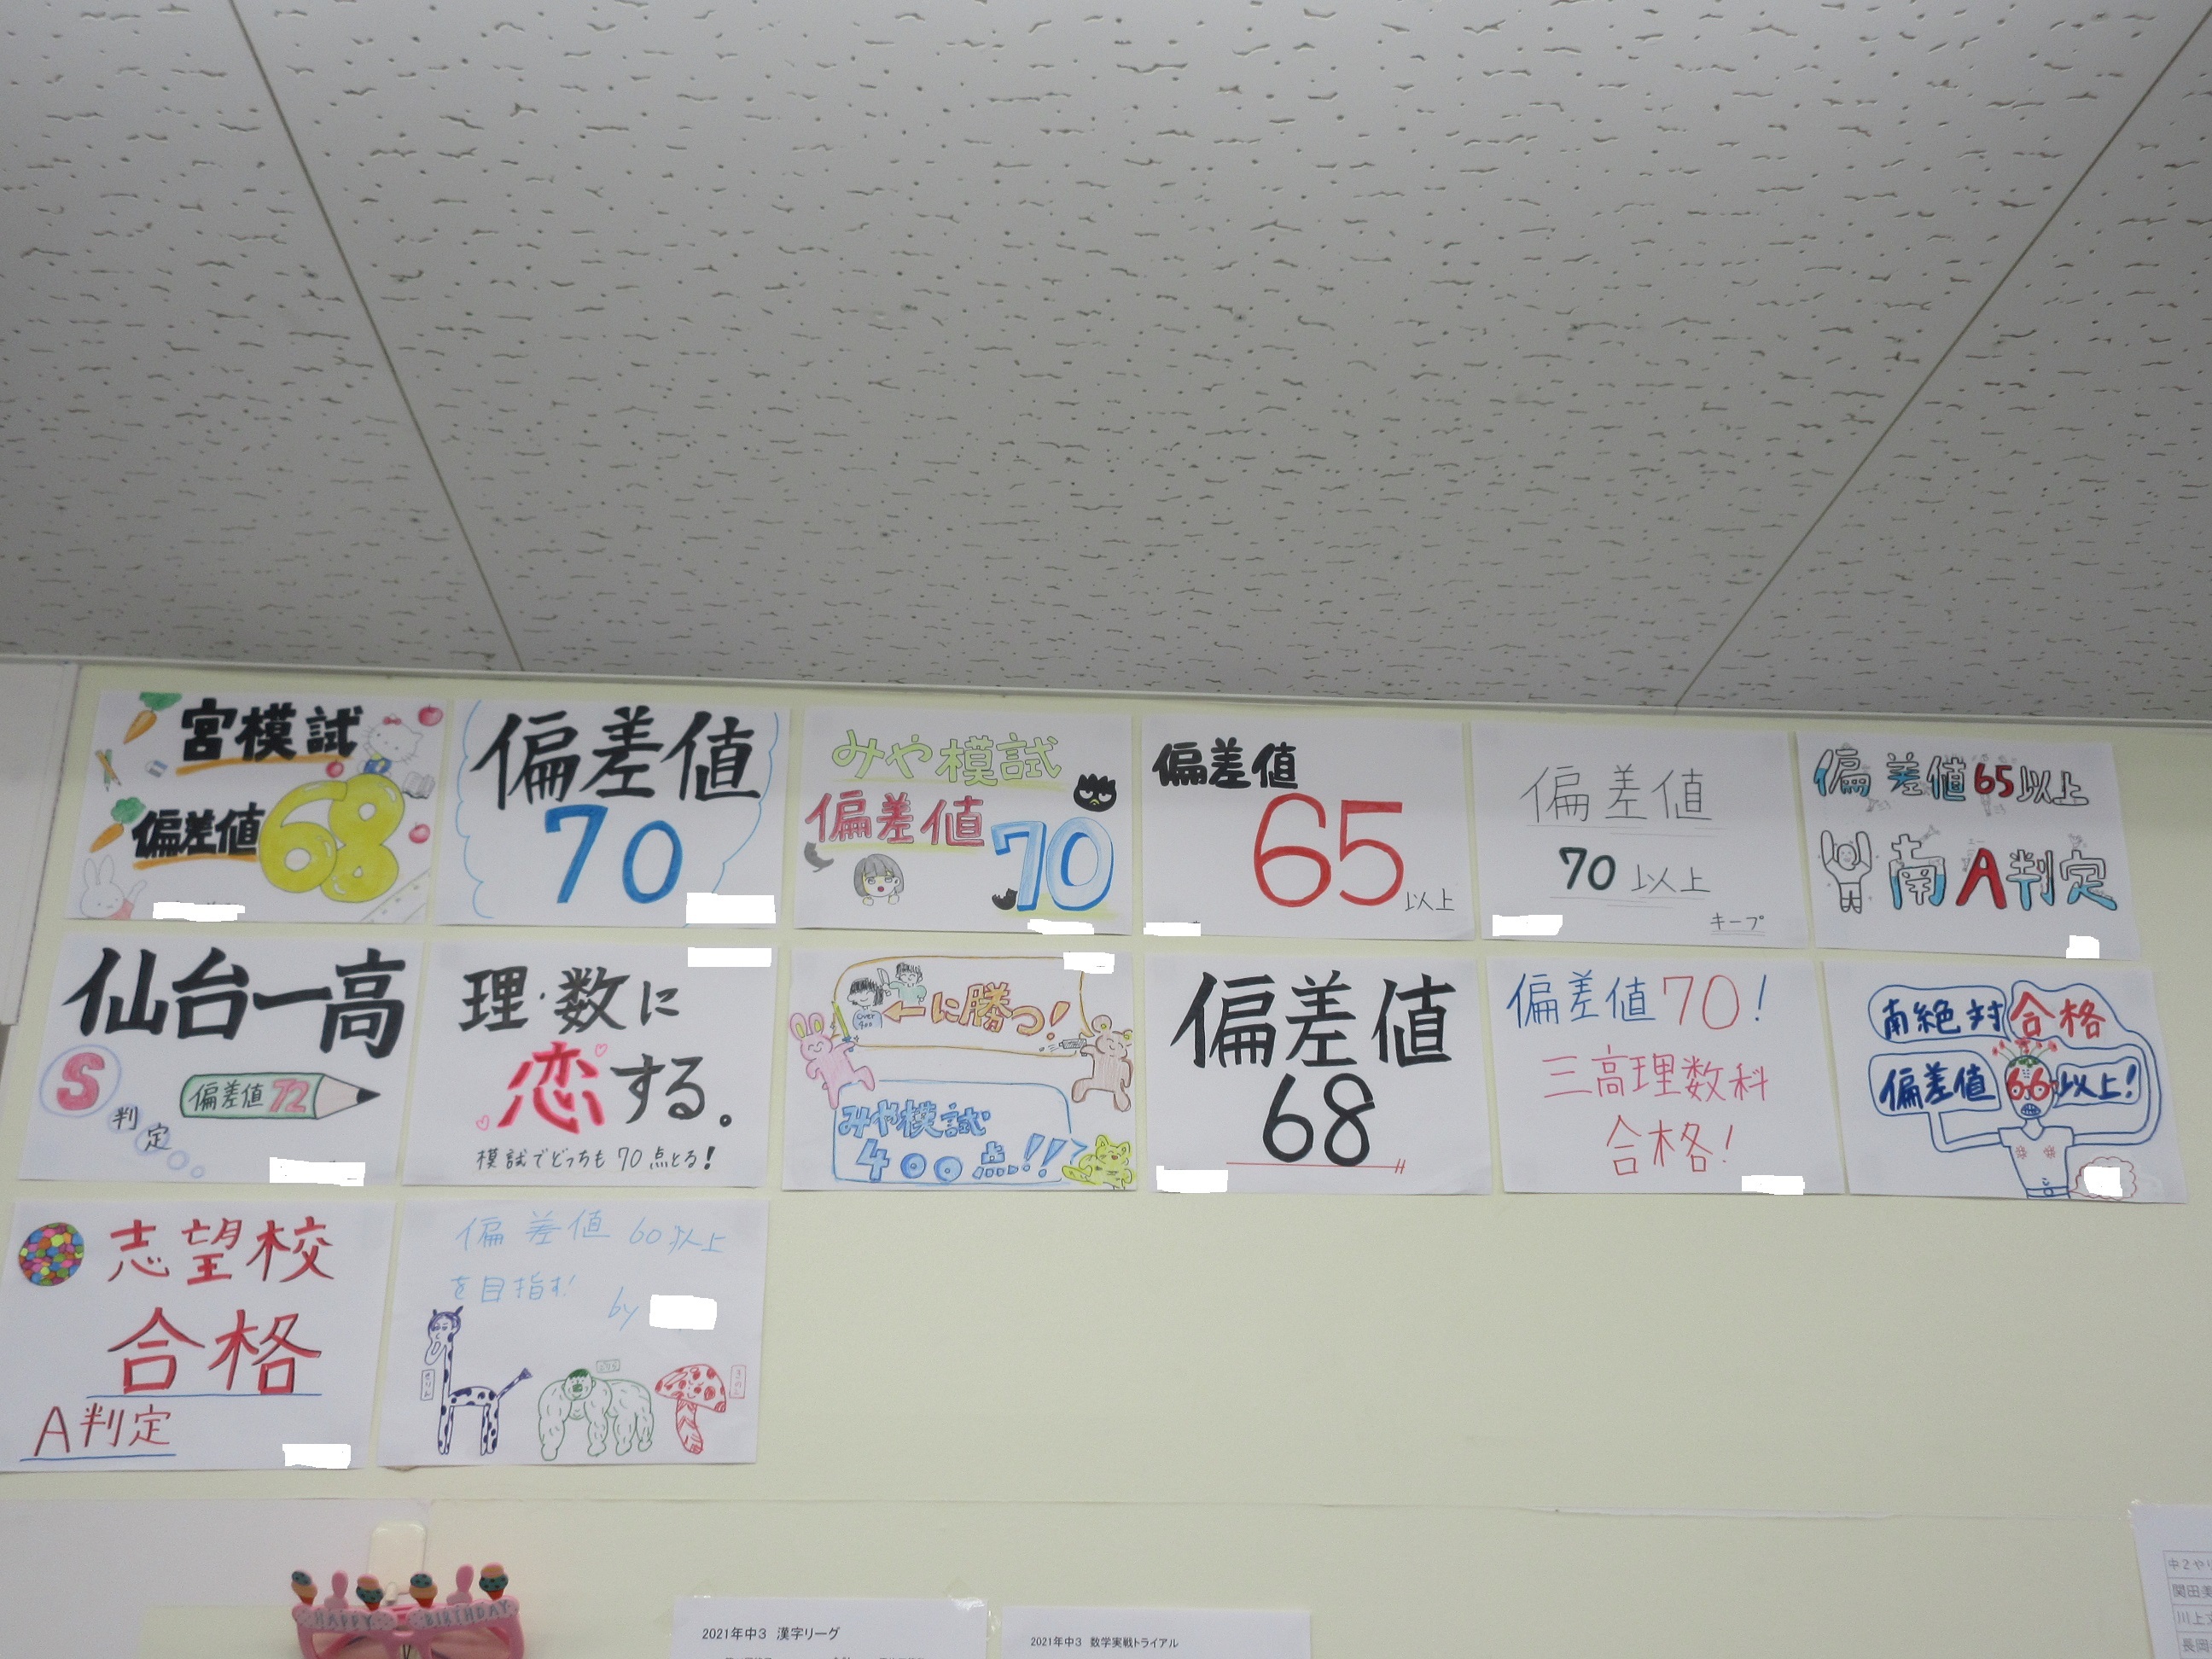 宮模試
偏差値68
偏差値
70
みや模試
偏差値
70
偏差値
65
以上
偏差値
70以上
キープ
偏差値65以上
南A判定
仙台一高
S判定
偏差値72
理・数に
恋する。
模試でどっちも70点とる!
over
400
←に勝つ!
みや模試
400点!!
偏差値
68
偏差値70!
三高理数科
合格!
南絶対合格
偏差値66以上!
志望校
合格
A判定
偏差値60以上
を目指す!
by
きりん
HAPPY BIRTHDAY
2021年中3 漢字リーグ
2021年中3 数学実戦トライアル
中2や
川上
長岡